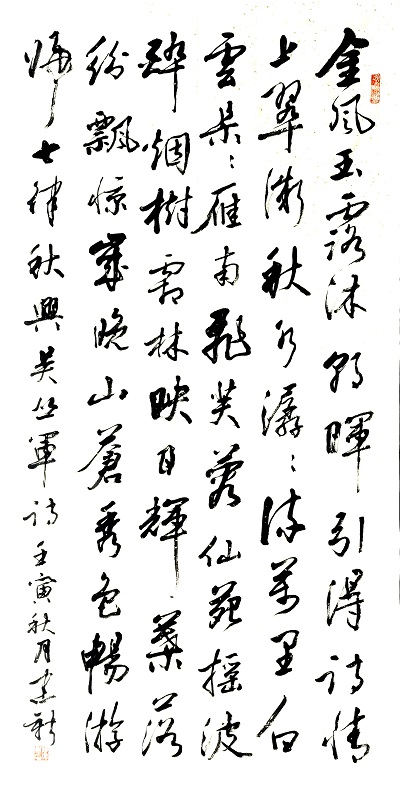 金風玉露沐朝暉引得詩情
上翠微秋水潺潺流萬里白
雲朵朵雁南飛芙蓉仙苑搖波
碎烟樹霜林映日輝葉落
紛飄惊歲晚山蒼秀色暢游
歸七律秋興吴丛軍詩壬寅秋月